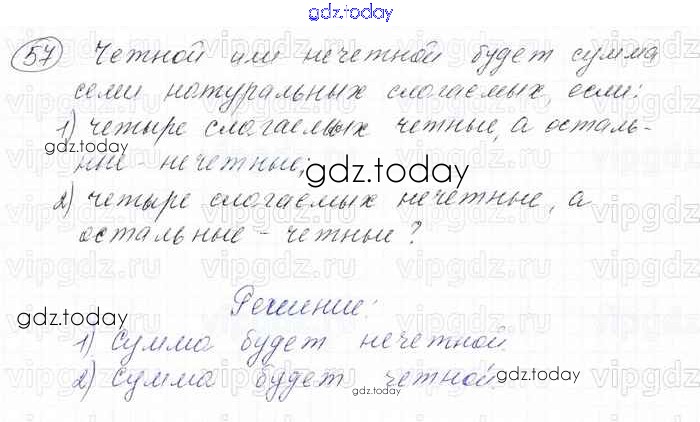 gdz.today
57 Четной или нечетной будет сумма
семи натуральных слагаемых, если:
1) четыре слагаемых четные, а осталь-
gdz.today
ные - нечетные;
gdz.today
2) четыре слагаемых нечетные, а
остальные - четные?
Решение:
gdz.today
1) Сумма будет нечетной.
2) Сумма будет четной.
gdz.today